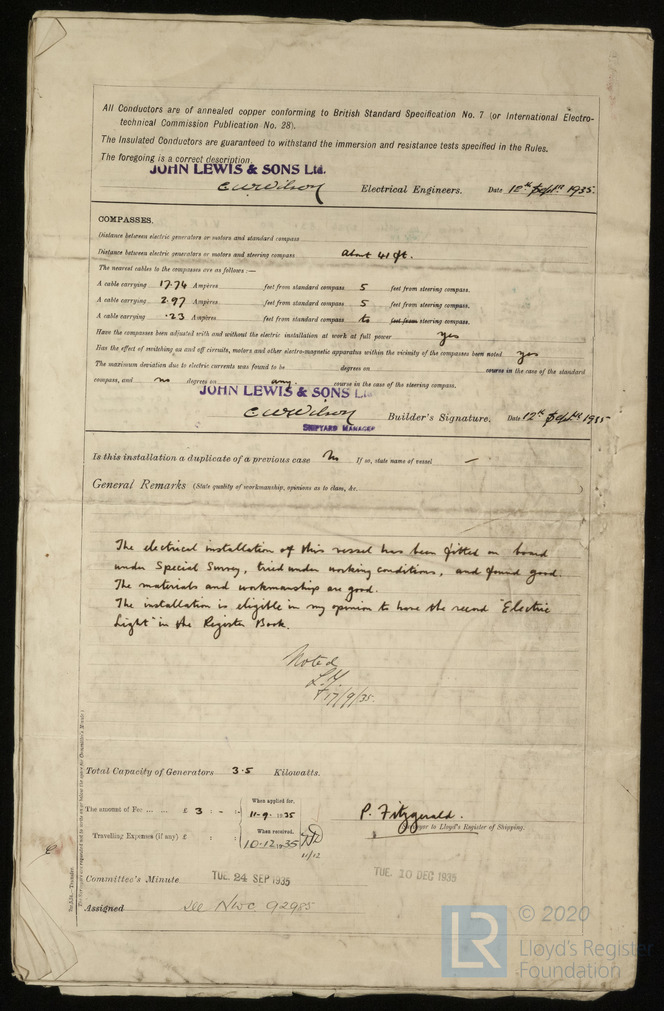 All Conductors are of annealed copper conforming to British Standard Specification No. 7 (or International Electro-
technical Commission Publication No. 28).
The Insulated Conductors are guaranteed to withstand the immersion and resistance tests specified in the Rules.
The foregoing is a correct description.
JOHN LEWIS & SONS Ltd.
C W Wilson Electrical Engineers. Date 12th Sept. 1935.
COMPASSES.
Distance between electric generators or motors and standard compass
Distance between electric generators or motors and steering compass About 41 ft.
The nearest cables to the compasses are as follows:—
A cable carrying 17.74 Ampères feet from standard compass 5 feet from steering compass.
A cable carrying 2.97 Ampères feet from standard compass 5 feet from steering compass.
A cable carrying .23 Ampères feet from standard compass to feet from steering compass.
Have the compasses been adjusted with and without the electric installation at work at full power yes
Has the effect of switching on and off circuits, motors and other electro-magnetic apparatus within the vicinity of the compasses been noted yes
The maximum deviation due to electric currents was found to be degrees on course in the case of the standard
compass, and no degrees on any course in the case of the steering compass.
JOHN LEWIS & SONS L
C W Wilson Builder's Signature. Date 12th Sept 1935
SHIPYARD MANAGER
Is this installation a duplicate of a previous case No If so, state name of vessel —
General Remarks (State quality of workmanship, opinions as to class, &c.
The electrical installation of this vessel has been fitted on board
under Special Survey, tried under working conditions, and found good.
The materials and workmanship are good.
The installation is eligible in my opinion to have the record "Electric
Light" in the Register Book.
Noted
17/9/35.
Total Capacity of Generators 3.5 Kilowatts.
The amount of Fee ... ... £ 3 : - :
When applied for,
11-9-1935
P. Fitzgerald.
Surveyor to Lloyd's Register of Shipping.
Travelling Expenses (if any) £ : :
When received.
10-12-1935
11/12
Committee's Minute TUE. 24 SEP 1935 TUE. 10 DEC 1935
Assigned See Nwc 92985
LR
© 2020
Lloyd's Register
Foundation